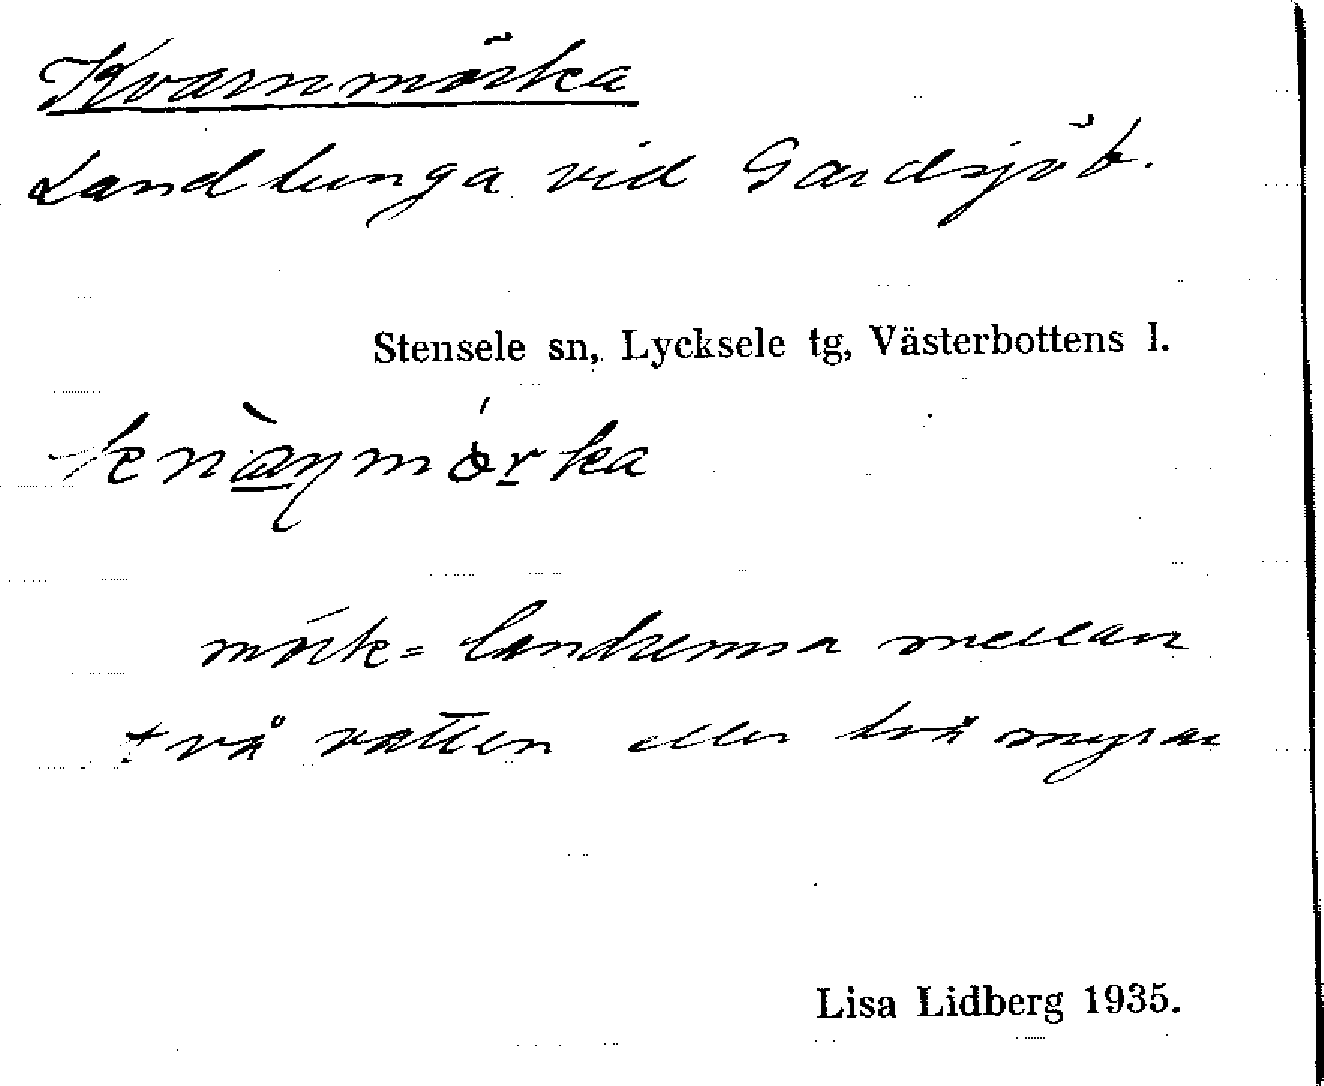 Kvarnmörka
Landtunga vid Gardsjöb.
Stensele sn, Lycksele tg, Västerbottens l.
mörk = landremsa mellan
två vatten eller två myrar
Lisa Lidberg 1935.